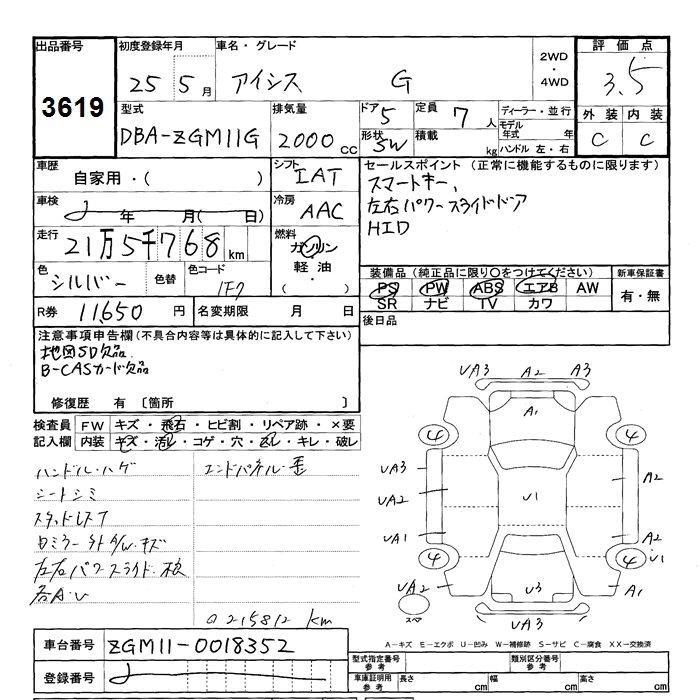 出品番号
3619
初度登録年月
25 5月
車名・グレード
アイシス G
2WD
・
4WD
評価点
3.5
外装 内装
C C
型式
DBA-ZGM11G
排気量
2000cc
ドア 5
形状 SW
定員 7人
積載 kg
ディーラー・並行
モデル年式 年
ハンドル 左・右
車歴
自家用・( )
シフト
IAT
セールスポイント (正常に機能するものに限ります)
スマートキー、
左右パワースライドドア
HID
車検
年 月( 日)
冷房
AAC
走行
21万5千768km
燃料
ガソリン
軽油
・( )
色
シルバー
色替
色コード
1F7
装備品(純正品に限り○をつけてください)
PS PW ABS エアB AW
SR ナビ TV カワ
新車保証書
有・無
R券 11,650円
名変期限 月 日
後日品
注意事項申告欄(不具合内容等は具体的に記入して下さい)
地図SD欠品
B-CASカード欠品
修復歴 有 〔箇所 〕
検査員記入欄
FW キズ・飛石・ヒビ割・リペア跡・×要
内装 キズ・汚れ・コゲ・穴・ズレ・キレ・破レ
ハンドル・ハゲ
シートシミ
エンドパネル・歪
左右パワースライド・
各A・U
@215812 km
UA3 A2 A3
A1
4 4
UA3
UA2
UA1
U1
A2
A2
U1
4 4
UA2
U3
A1
UA3
スペア
A-キズ E-エクボ U-凹み W-補修跡 S-サビ C-腐食 XX-交換済
車台番号 ZGM11-0018352
登録番号
型式指定番号 参考
類別区分番号 参考
車庫証明用 参考
長さ cm 幅 cm 高さ cm